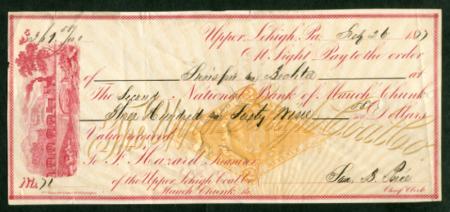 $369.00/100 Upper Lehigh, Pa. Sep 26 187
At Sight Pay to the order
of
at
The Second National Bank of Mauch Chunk
Three Hundred and Sixty Nine 00/100 Dollars
Value received
To F. Hazard Treasurer
of the Upper Lehigh Coal Co.
Mauch Chunk, Pa.
No. 71
Jas. B.
Chief Clerk